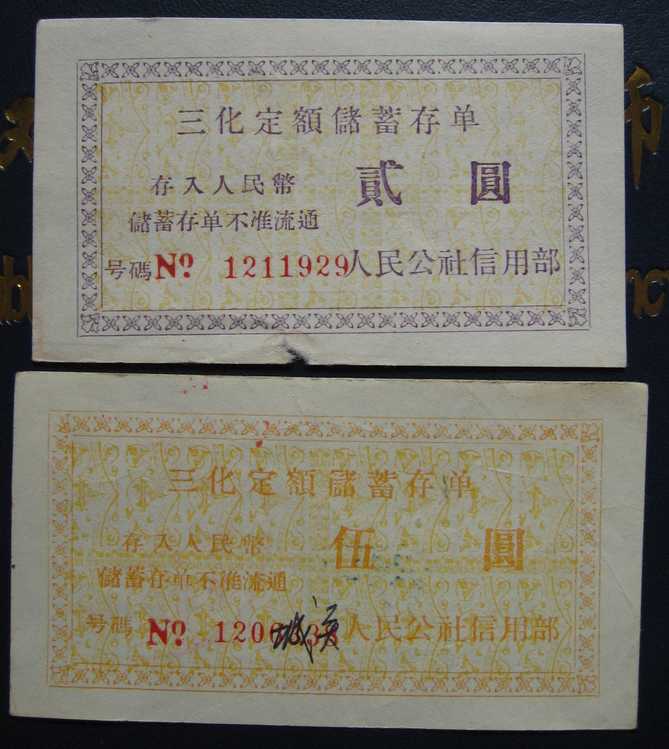 三化定額儲蓄存单
存入人民幣 貳圓
儲蓄存单不准流通
号碼 No. 1211929 人民公社信用部
三化定額儲蓄存单
存入人民幣 伍圓
儲蓄存单不准流通
号碼 No. 120 人民公社信用部